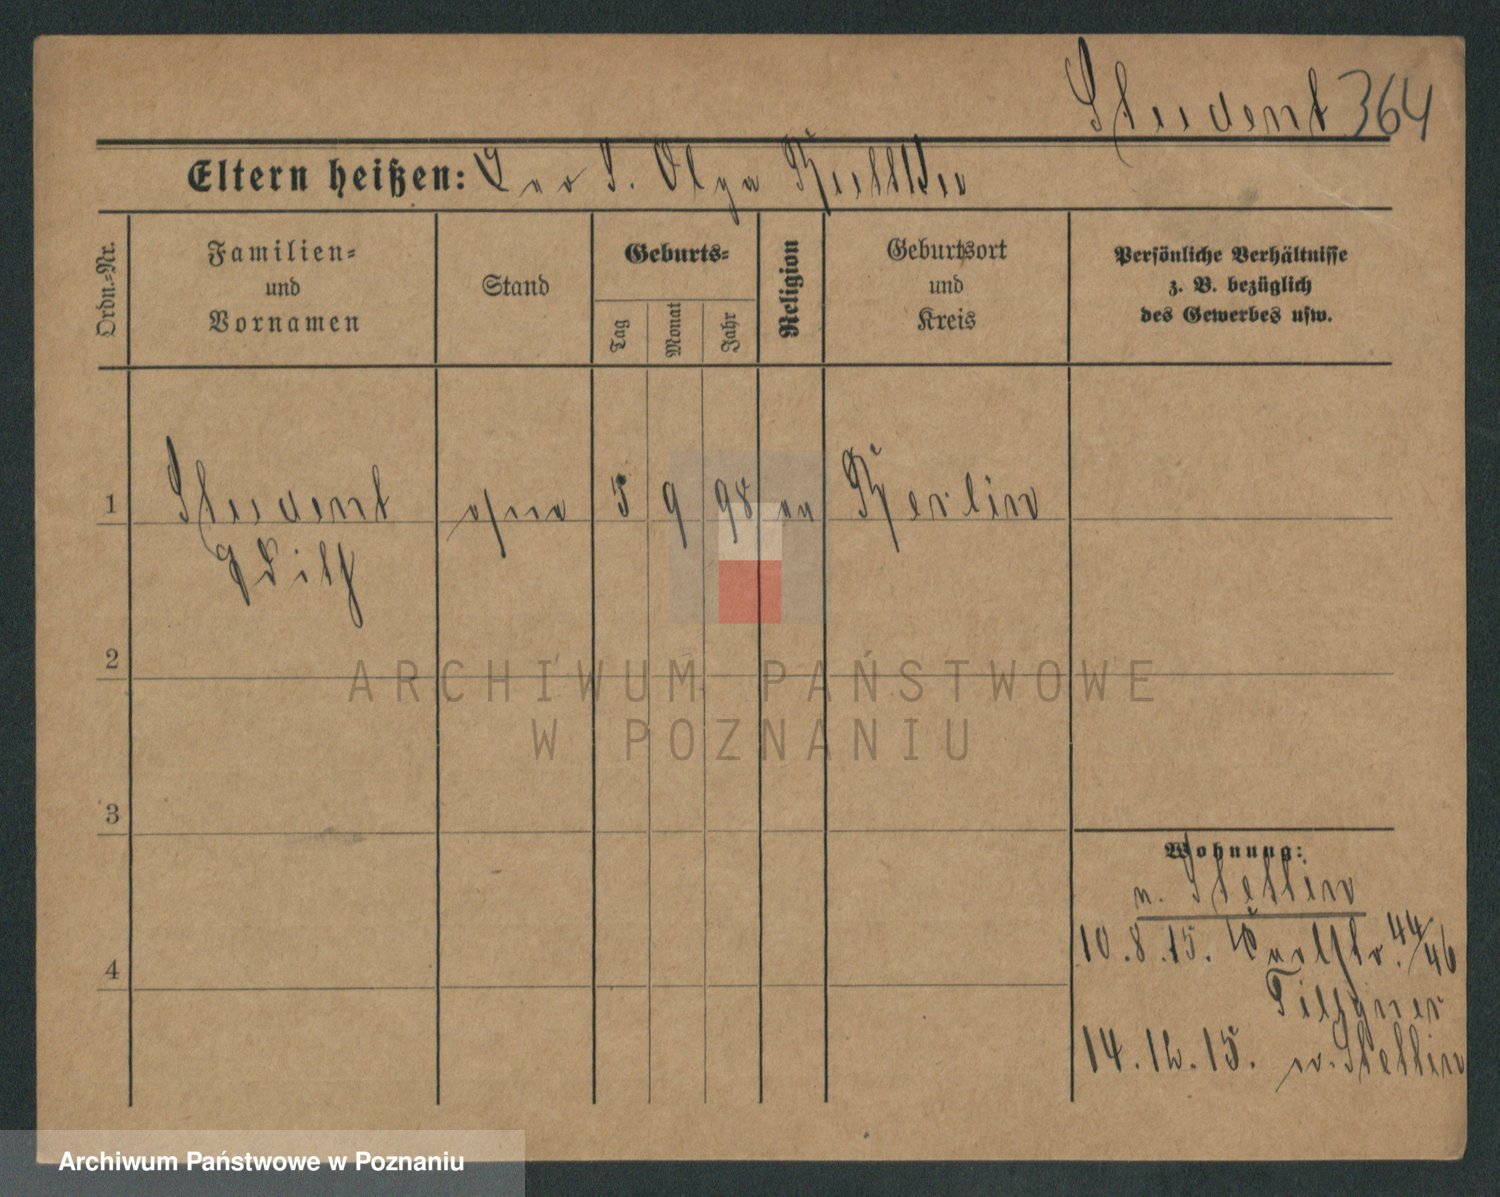 Student 364
Eltern heißen: Leo S. Olga
Ordn.-Nr.
Familien-
und
Vornamen
Stand
Geburts-
Tag
Monat
Jahr
Religion
Geburtsort
und
Kreis
Persönliche Verhältnisse
z. B. bezüglich
des Gewerbes usw.
1 Student 5 9 98 Berlin
Edith
2
3
4
Wohnung:
n. Stettin
10.8.15. 44/46
14.12.15. Stettin
ARCHIWUM PAŃSTWOWE
W POZNANIU
Archiwum Państwowe w Poznaniu